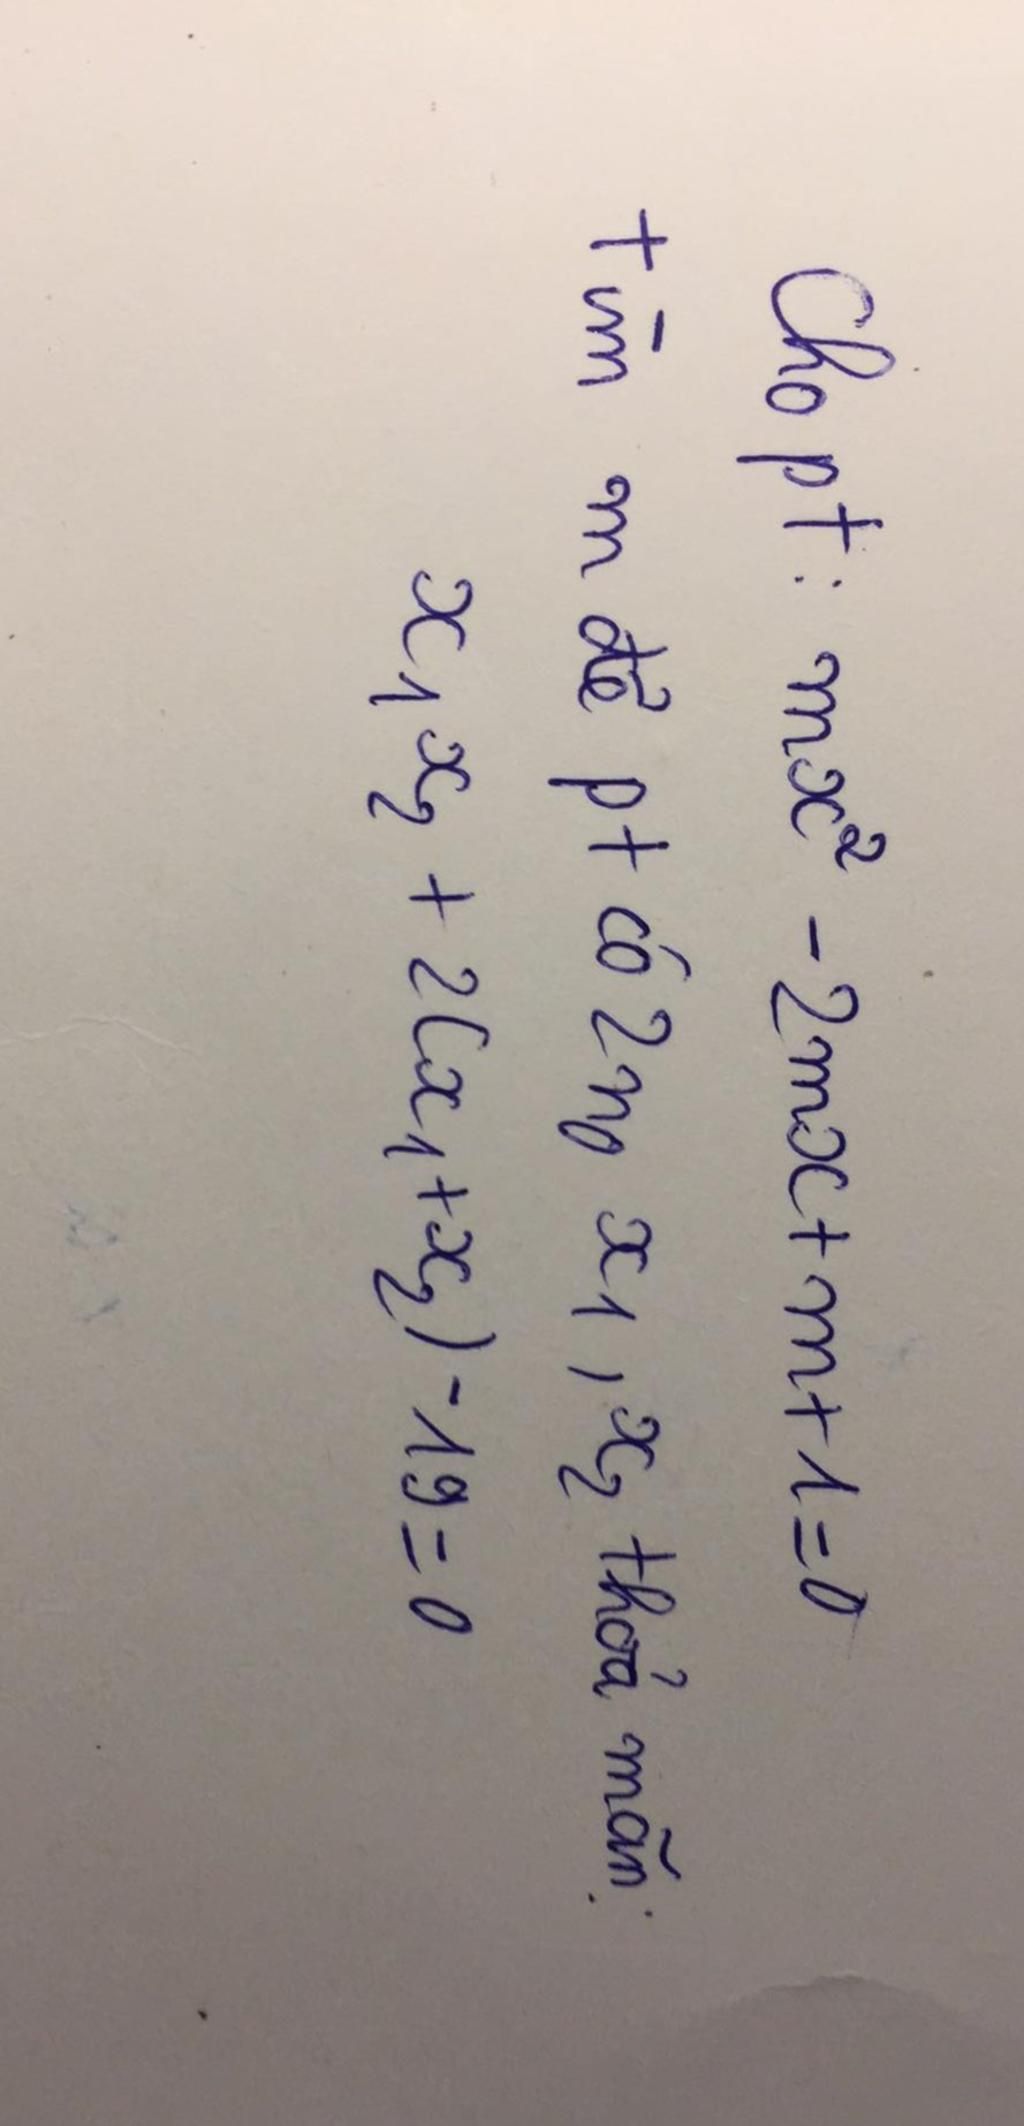 Cho pt: mx² - 2mx + m + 1 = 0
tìm m để pt có 2 n₀ x₁, x₂ thoả mãn:
x₁x₂ + 2(x₁+x₂) - 19 = 0